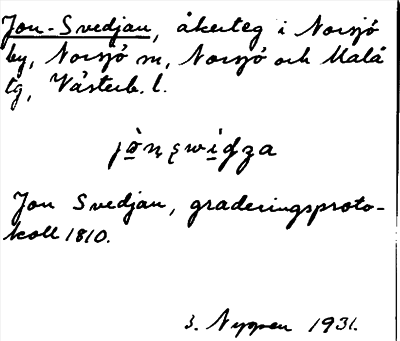 Jon-Svedjan, åkerteg i Norsjö
by, Norsjö sn, Norsjö och Malå
tg, Västerb. l.
Jon Svedjan, graderingsproto-
koll 1810.
1931.